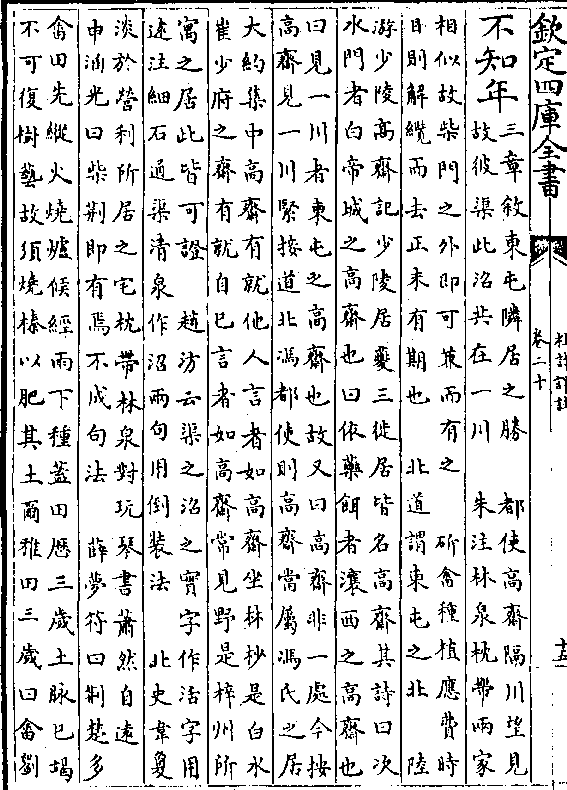 欽定四庫全書
杜詩詳註
卷二十
十五
不知年
三章敘東屯隣居之勝 都使高齋隔川望見
故彼渠此沼共在一川 朱注林泉枕帶兩家
相似故柴門之外即可兼而有之 斫畬種植應費時
日則解纜而去正未有期也 北道謂東屯之北 陸
游少陵高齋記少陵居夔三徙居皆名高齋其詩曰次
水門者白帝城之高齋也曰依藥餌者瀼西之高齋也
曰見一川者東屯之高齋也故又曰高齋非一處今按
高齋見一川緊接道北馮都使則高齋當屬馮氏之居
大約集中高齋有就他人言者如高齋坐林杪是白水
崔少府之齋有就自已言者如高齋常見野是梓州所
寓之居此皆可證 趙汸云渠之沼之實字作活字用
述注細石通渠清泉作沼兩句用倒裝法 北史韋敻
淡於營利所居之宅枕帶林泉對玩琴書蕭然自遠
申涵光曰柴荆即有焉不成句法 薛夢符曰荆楚多
畬田先縱火燒爐候經雨下種蓋田歷三歲土脉已竭
不可復樹藝故須燒榛以肥其土爾雅田三歲曰畬劉